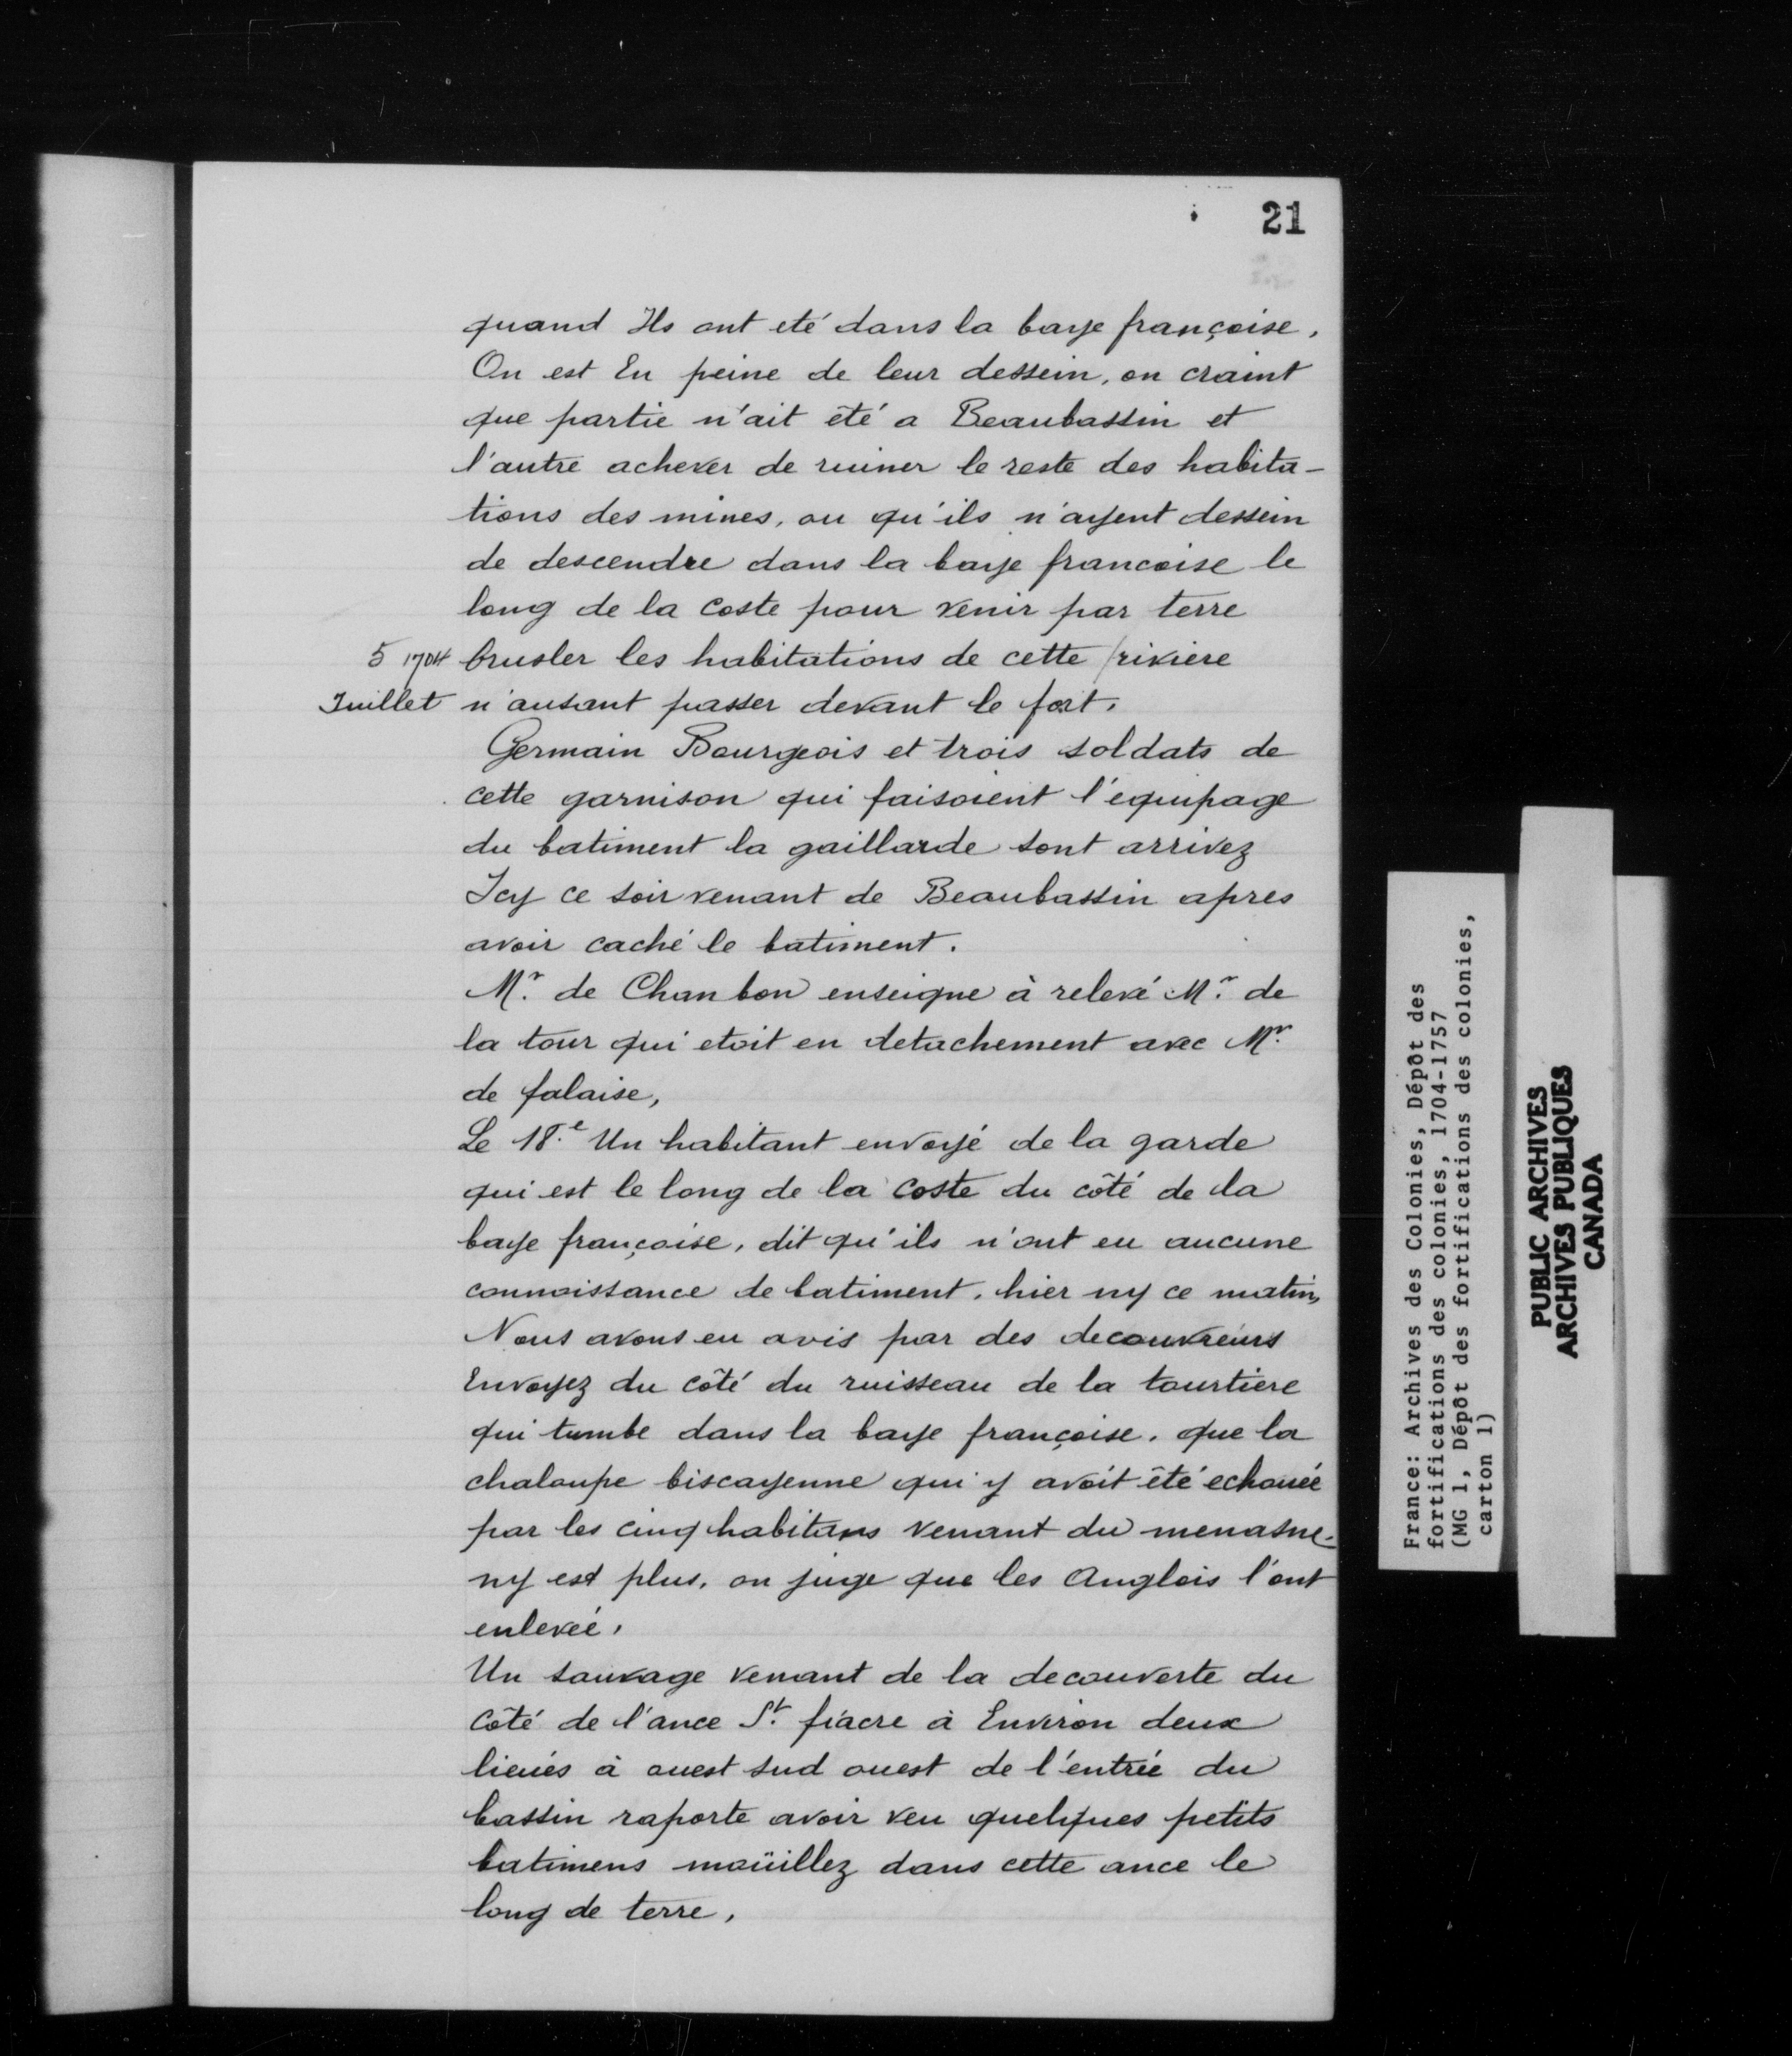 21
quand Ils ont eté dans la baye françoise,
On est En peine de leur dessein, on craint
que partie n'ait été a Beaubassin et
l'autre achever de ruiner le reste des habita-
tions des mines, ou qu'ils n'ayent dessein
de descendre dans la baye francoise le
long de la coste pour venir par terre
5 1704 brusler les habitations de cette rivière
Juillet n'ausant passer devant le fort.
Germain Bourgeois et trois soldats de
cette garnison qui faisoient l'equipage
du batiment la gaillarde sont arrivez
Icy ce soir venant de Beaubassin apres
avoir caché le batiment.
Mr. de Chanbon enseigne à relevé Mr. de
la tour qui etoit en detachement avec Mr.
de falaise,
Le 18.e Un habitant envoyé de la garde
qui est le long de la coste du côté de la
baye françoise, dit qu'ils n'ont eu aucune
connoissance de batiment, hier ny ce matin,
Nous avons eu avis par des decouvreurs
Envoyez du côté du ruisseau de la tourtiere
qui tumbe dans la baye françoise, que la
chaloupe biscayenne qui y avoit été echouée
par les cinq habitans venant du menasne
ny est plus, on juge que les Anglois l'ont
enlevée,
Un sauvage venant de la decouverte du
côté de l'ance St. fiacre à Environ deux
lieües à ouest sud ouest de l'entrée du
bassin raporte avoir veu quelques petits
batimens moüillez dans cette ance le
long de terre,
France: Archives des Colonies, Dépôt des
fortifications des colonies, 1704-1757
(MG 1, Dépôt des fortifications des colonies,
carton 1)
PUBLIC ARCHIVES
ARCHIVES PUBLIQUES
CANADA